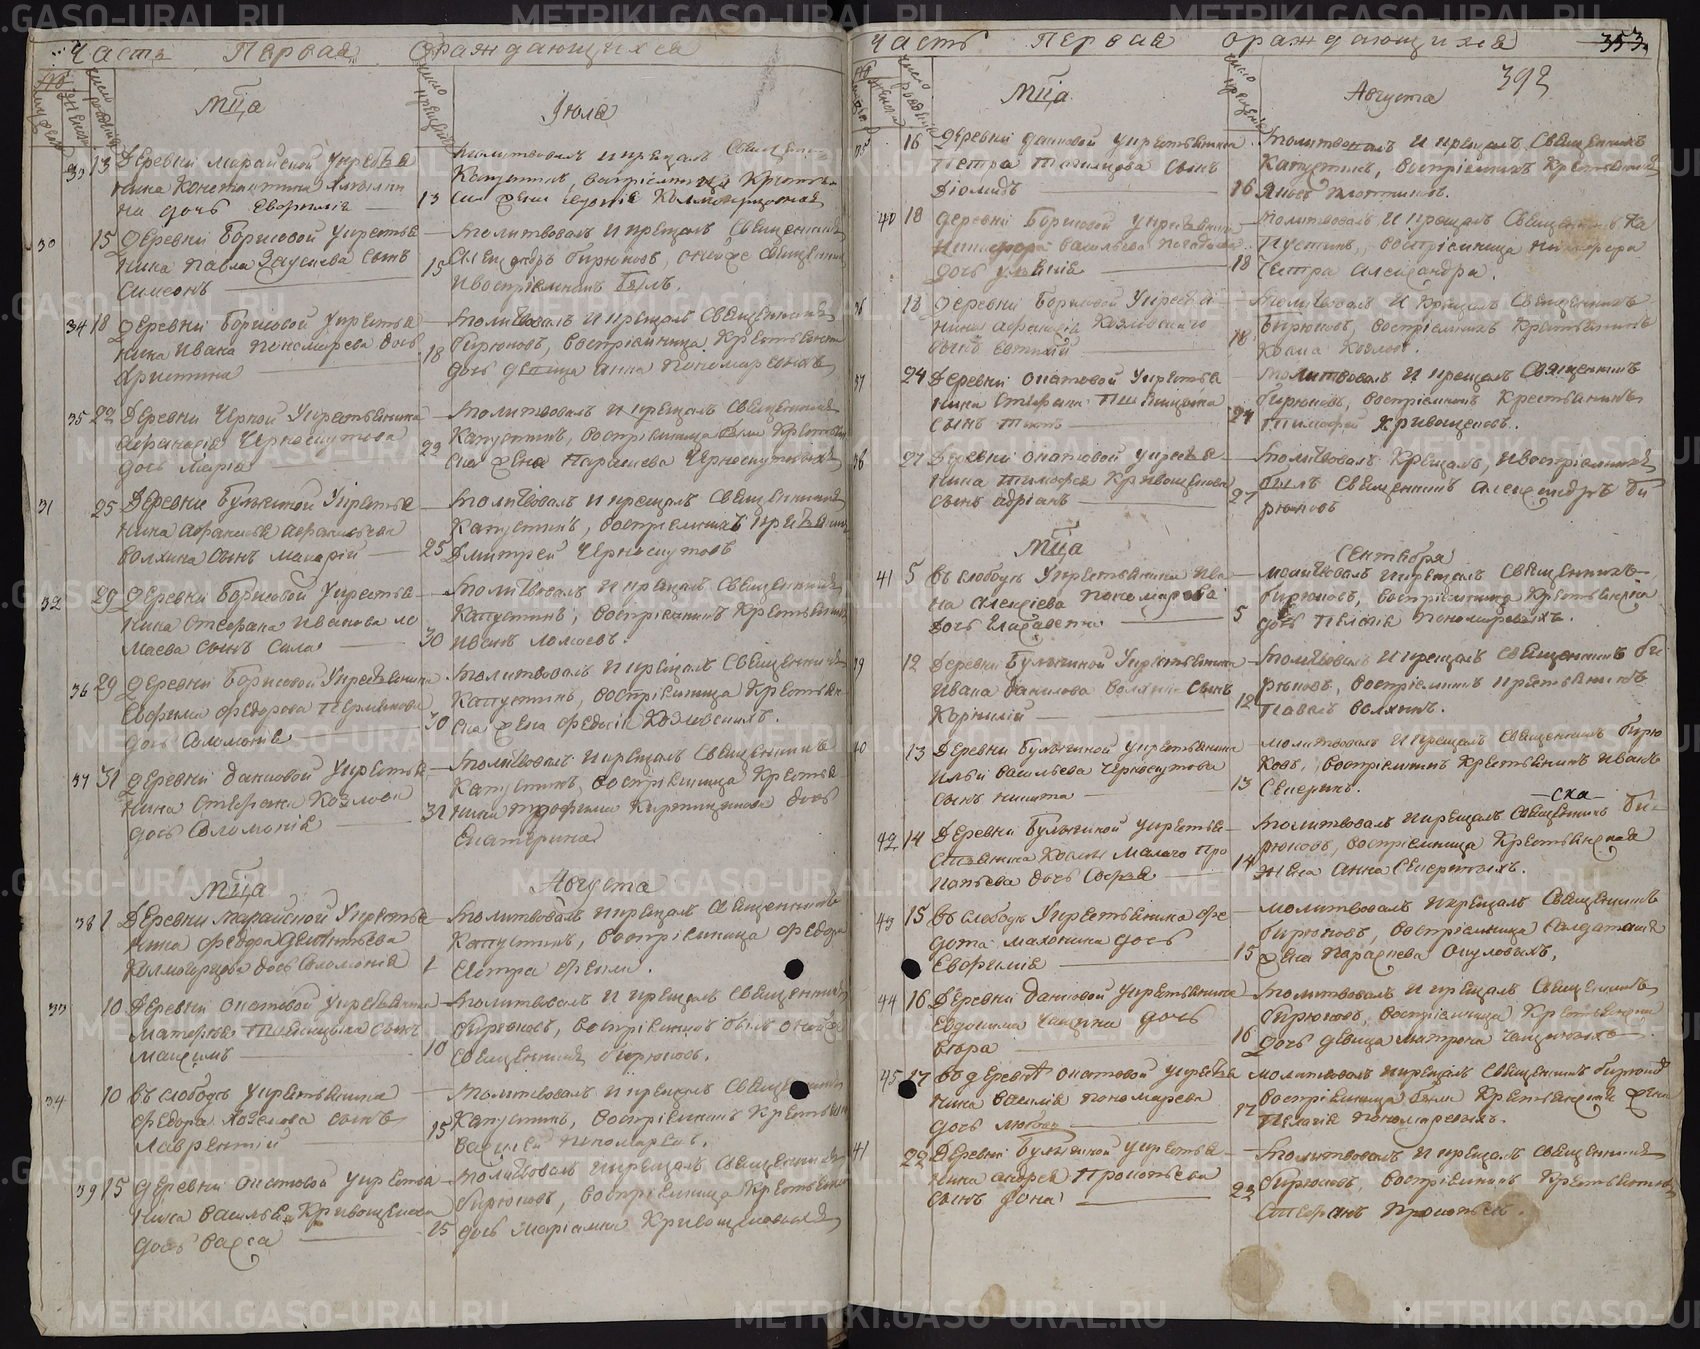 Часть Первая Ораждающихся
Мца Іюля
13 Деревни Марайской Укрестья
нина Константина
на дочь Евфимія
Молитвовалъ и крещалъ Священникъ
Капустинъ, воспріемница Крестьян
13 ска жена Евдокія
30 15 Деревни Борисовой Укрестья
нина Павла Заусаева сынъ
Симеонъ
Молитвовалъ и крещалъ Священникъ
15 Александръ Бирюковъ, онъ же Священник
и воспріемникъ былъ.
34 18 Деревни Борисовой Укрестья
нина Ивана Пономарева дочь
Христина
Молитвовалъ и крещалъ Священникъ
18 Бирюковъ, воспріемница Крестьянская
дочь девица Анна Пономаревыхъ
35 22 Деревни Черной Укрестьянина
Афанасія Черноскутова
дочь Марія
Молитвовалъ и крещалъ Священникъ
Капустинъ, воспріемница была Крестьян
22 ска жена Параскева Черноскутовыхъ
31 25 Деревни Булыгиной Укрестья
нина Афанасія Афанасьева
Волхина сынъ Макарій
Молитвовалъ и крещалъ Священникъ
Капустинъ, воспріемникъ Крестьянинъ
25 Дмитрей Черноскутовъ
32 29 Деревни Борисовой Укрестья
нина Стефана Иванова Ло
маева сынъ Сила
Молитвовалъ и крещалъ Священникъ
Капустинъ, воспріемникъ Крестьянинъ
30 Иванъ Ломаевъ.
36 29 Деревни Борисовой Укрестьянина
Евфима Федорова
дочь Соломонія
Молитвовалъ и крещалъ Священникъ
Капустинъ, воспріемница Крестьян
30 ска жена Федосія Козловскихъ.
37 31 Деревни Данковой Укрестья
нина Стефана Козлова
дочь Соломонія
Молитвовалъ и крещалъ Священникъ
Капустинъ, воспріемница Крестья
31 нина Трофима Кирпищикова дочь
Екатерина
Мца Августа
38 1 Деревни Марайской Укрестья
нина Федора Дементьева
Колмогорцова дочь Соломонія
Молитвовалъ и крещалъ Священникъ
Капустинъ, воспріемница Федора
1 сестра Фекла.
33 10 Деревни Охатовой Укрестьянина
сынъ
Максимъ
Молитвовалъ и крещалъ Священникъ
Бирюковъ, воспріемникъ былъ онъ же
10 Священникъ Бирюковъ.
34 10 Въ слободѣ Укрестьянина
Федора Козлова сынъ
Лаврентій
Молитвовалъ и крещалъ Священникъ
15 Капустинъ, воспріемникъ Крестьянин
Василей Пономаревъ.
39 15 Деревни Охатовой Укрестья
нина Василья Кривощекова
дочь Васса
Молитвовалъ и крещалъ Священникъ
Бирюковъ, воспріемница Крестьянская
15 дочь Маріамна Кривощековыхъ
Часть Первая Ораждающихся 353
392
Мца Августа
16 Деревни Данковой Укрестьянина
Петра сынъ
Діомидъ
Молитвовалъ и крещалъ Священникъ
Капустинъ, воспріемникъ Крестьянинъ
16 Яковъ Плотниковъ.
40 18 Деревни Борисовой Укрестьянина
Никифора Васильева
дочь
Молитвовалъ и крещалъ Священникъ Ка
пустинъ, воспріемница Никифора
18 сестра Александра.
36 18 Деревни Борисовой Укрестья
нина Афанасія Козловскаго
сынъ Евтихій
Молитвовалъ и крещалъ Священникъ
Бирюковъ, воспріемникъ Крестьянинъ
18 Козма Козловъ.
37 24 Деревни Охатовой Укрестья
нина Стефана Пшеницына
сынъ Титъ
Молитвовалъ и крещалъ Священникъ
Бирюковъ, воспріемникъ Крестьянинъ
24 Тимофей Кривощековъ.
38 27 Деревни Охатовой Укрестья
нина Тимофея Кривощекова
сынъ Адріанъ
Молитвовалъ Крещалъ, и воспріемникъ
27 былъ Священникъ Александръ Би
рюковъ
Мца Сентября
41 5 Въ слободѣ Укрестьянина Ива
на Алексіева Пономарева
дочь Елисавета
Молитвовалъ и крещалъ Священникъ
Бирюковъ, воспріемница Крестьянска
5 дочь Пелагія Пономаревыхъ.
39 12 Деревни Булыгиной Укрестьянина
Ивана Данилова Волхина сынъ
Корнилій
Молитвовалъ и крещалъ Священникъ Би
рюковъ, воспріемникъ Крестьянинъ
12 Павелъ Волхинъ.
40 13 Деревни Булыгиной Укрестьянина
Ильи Васильева Черноскутова
сынъ Никита
Молитвовалъ и крещалъ Священникъ Бирю
ковъ, воспріемникъ Крестьянинъ Иванъ
13 Секеринъ.
42 14 Деревни Булыгиной Укрестья
Козмы Малаго Про
копьева дочь Софья
ска
Молитвовалъ и крещалъ Священникъ Би
рюковъ, воспріемница Крестьянская
14 жена Анна Секериныхъ.
43 15 Въ слободѣ Укрестьянина Фе
дота Махонина дочь
Евфимія
Молитвовалъ и крещалъ Священникъ
Бирюковъ, воспріемница Солдатская
15 жена Параскева Окуловыхъ.
44 16 Деревни Данковой Укрестьянина
Евдокима Чащина дочь
Молитвовалъ и крещалъ Священникъ
Бирюковъ, воспріемница Крестьянская
16 дочь девица Матрона Чащиныхъ
45 17 Въ деревнѣ Охатовой Укрестья
нина Василія Пономарева
дочь Любовь
Молитвовалъ и крещалъ Священникъ Бирюковъ
воспріемница была Крестьянская жена
17 Пелагія Пономаревыхъ.
41 22 Деревни Булыгиной Укрестья
нина Андрея Прокопьева
сынъ Фока
Молитвовалъ и крещалъ Священникъ
23 Бирюковъ, воспріемникъ Крестьянинъ
Стефанъ Прокопьевъ.